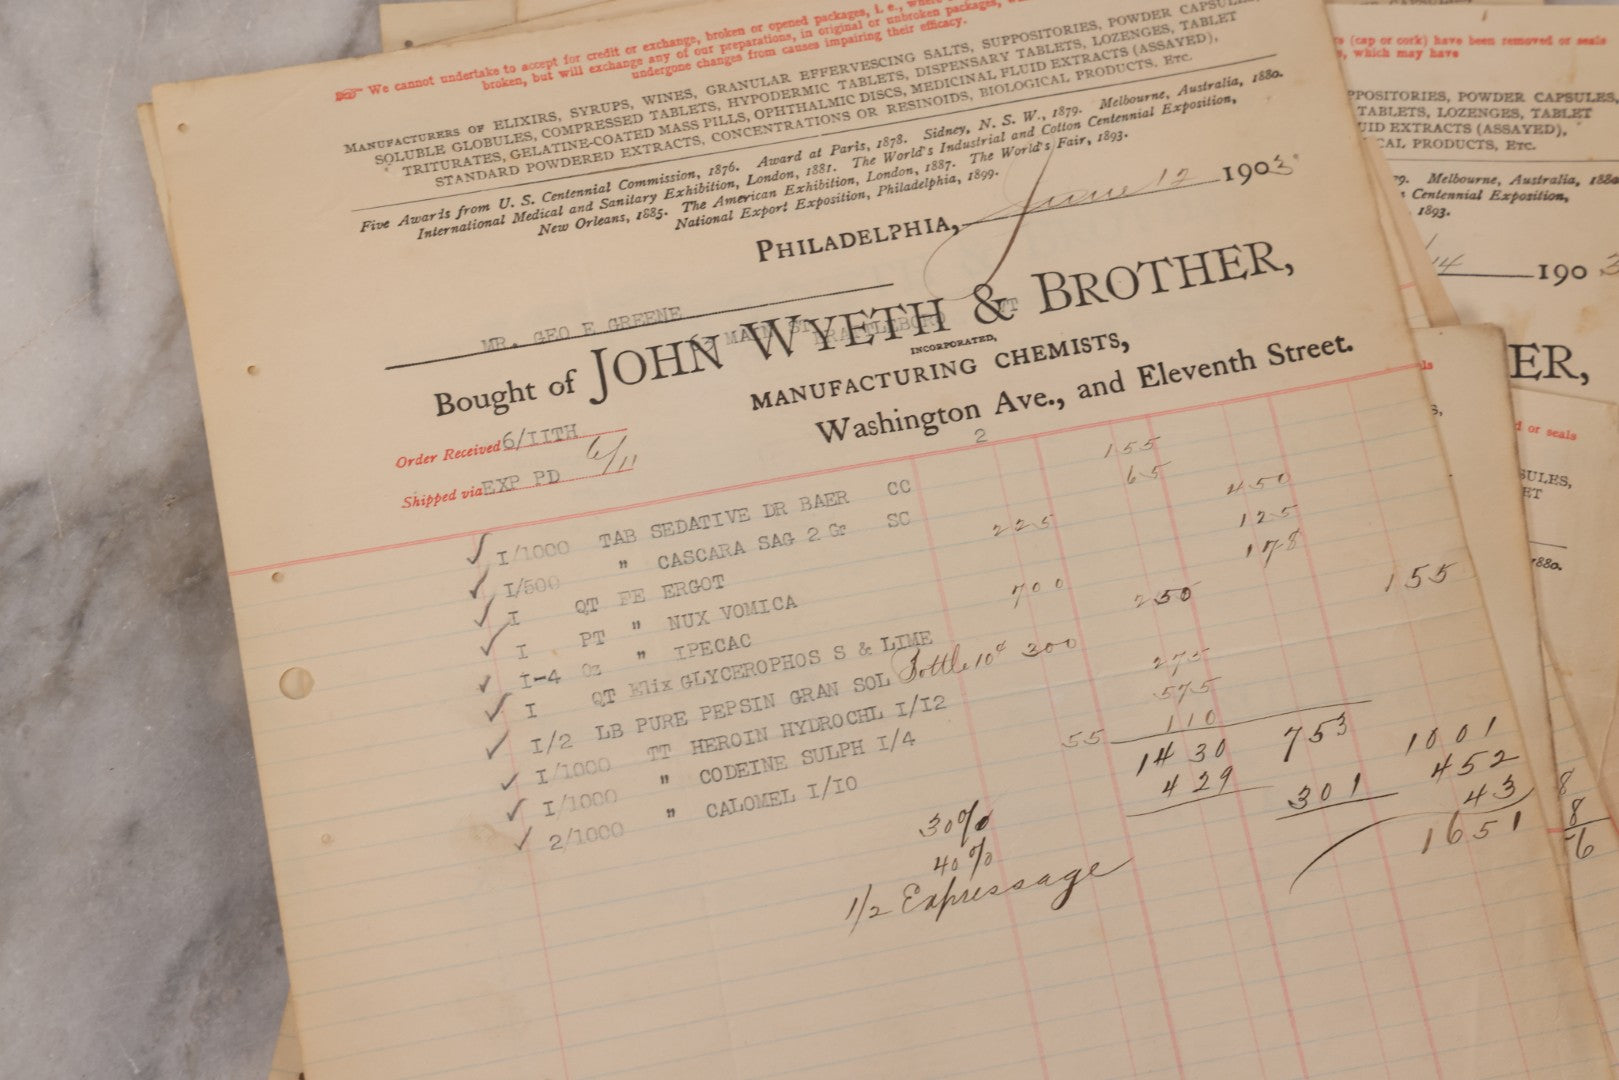 We cannot undertake to accept for credit or exchange, broken or opened packages, i. e., where
broken, but will exchange any of our preparations, in original or unbroken packages,
undergone changes from causes impairing their efficacy.
MANUFACTURERS OF ELIXIRS, SYRUPS, WINES, GRANULAR EFFERVESCING SALTS, SUPPOSITORIES, POWDER CAPSULES,
SOLUBLE GLOBULES, COMPRESSED TABLETS, HYPODERMIC TABLETS, DISPENSARY TABLETS, LOZENGES, TABLET
TRITURATES, GELATINE-COATED MASS PILLS, OPHTHALMIC DISCS, MEDICINAL FLUID EXTRACTS (ASSAYED),
STANDARD POWDERED EXTRACTS, CONCENTRATIONS OR RESINOIDS, BIOLOGICAL PRODUCTS, ETC.
Five Awards from U. S. Centennial Commission, 1876. Award at Paris, 1878. Sidney, N. S. W., 1879. Melbourne, Australia, 1880.
International Medical and Sanitary Exhibition, London, 1881. The World's Industrial and Cotton Centennial Exposition,
New Orleans, 1885. The American Exhibition, London, 1887. The World's Fair, 1893.
National Export Exposition, Philadelphia, 1899.
PHILADELPHIA, June 12 1903
MR. GEO E GREENE
MAIN ST BRATTLEBORO VT
Bought of JOHN WYETH & BROTHER,
INCORPORATED,
MANUFACTURING CHEMISTS,
Washington Ave., and Eleventh Street.
Order Received 6/IITH
Shipped via EXP PD 6/11
2
I/1000 TAB SEDATIVE DR BAER CC 155
I/500 " CASCARA SAG 2 Gr SC 65
I QT FE ERGOT 225 450
I PT " NUX VOMICA 125
I-4 Oz " IPECAC 178
I QT Elix GLYCEROPHOS S & LIME 700 250 155
I/2 LB PURE PEPSIN GRAN SOL Bottle 10¢ 300
I/1000 TT HEROIN HYDROCHL I/I2 275
I/1000 " CODEINE SULPH I/4 575
2/1000 " CALOMEL I/IO 55 110
1430 753 1001
30% 429 301 452
40% 43
1/2 Expressage 1651
(cap or cork) have been removed or seals
, which may have
PPOSITORIES, POWDER CAPSULES,
TABLETS, LOZENGES, TABLET
UID EXTRACTS (ASSAYED),
CAL PRODUCTS, ETC.
Melbourne, Australia, 1880
Centennial Exposition,
1893.
14 1903
ER,
or seals
SULES,
ET
1880.
8
8
6